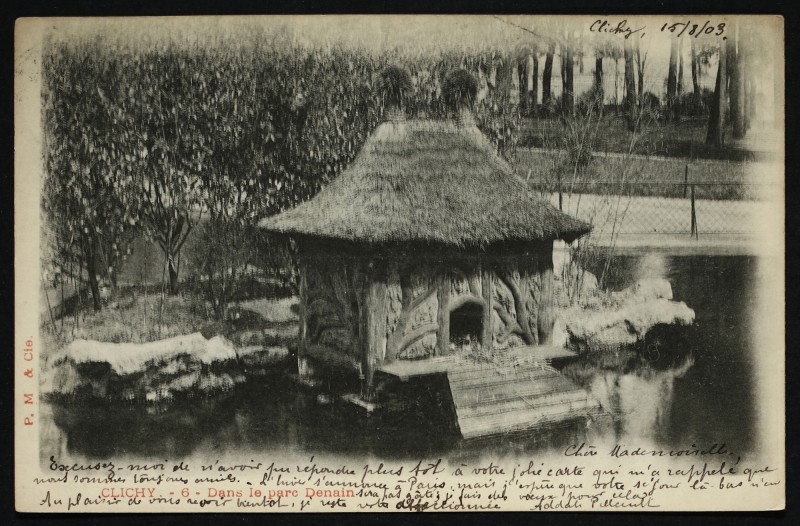 Clichy, 15/8/03.
P. M & Cie.
Chère Mademoiselle,
Excusez-moi de n'avoir pu répondre plus tôt à votre jolie carte qui m'a rappelé que
nous sommes toujours amies. - L'hiver s'annonce à Paris, mais j'espère que votre séjour là-bas n'en
CLICHY. - 6 - Dans le parc Denain
sera pas gâté; je fais des vœux pour cela.
Au plaisir de vous revoir bientôt, je reste votre affectionnée